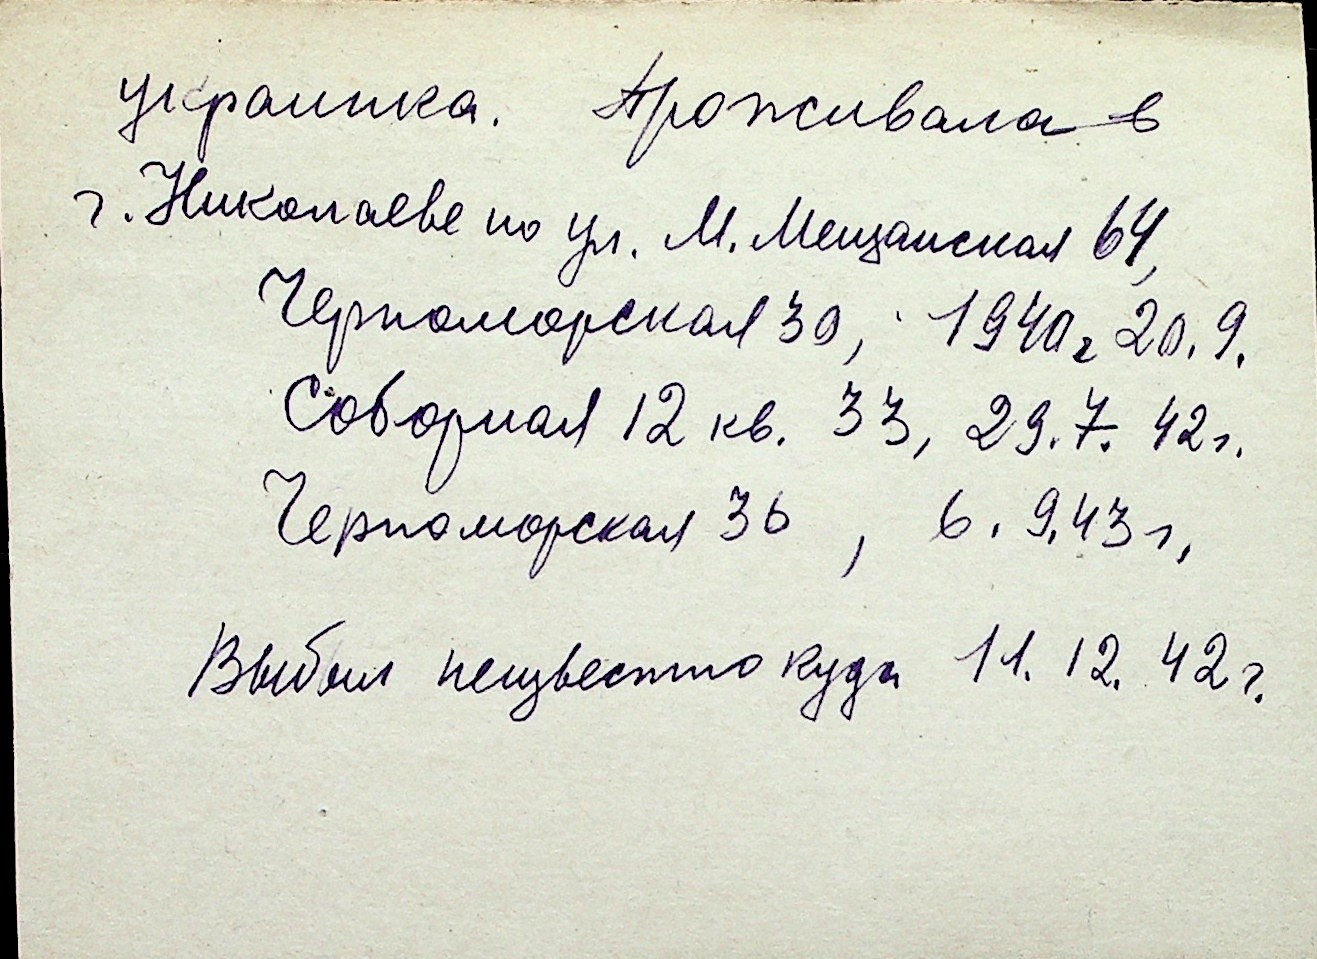 украинка. Проживала в
г. Николаеве по ул. М. Мещанская 64,
Черноморская 30, 1940г 20.9.
Соборная 12 кв. 33, 29.7.42г.
Черноморская 36, 6.9.43г,
Выбыл неизвестно куда 11.12.42г.